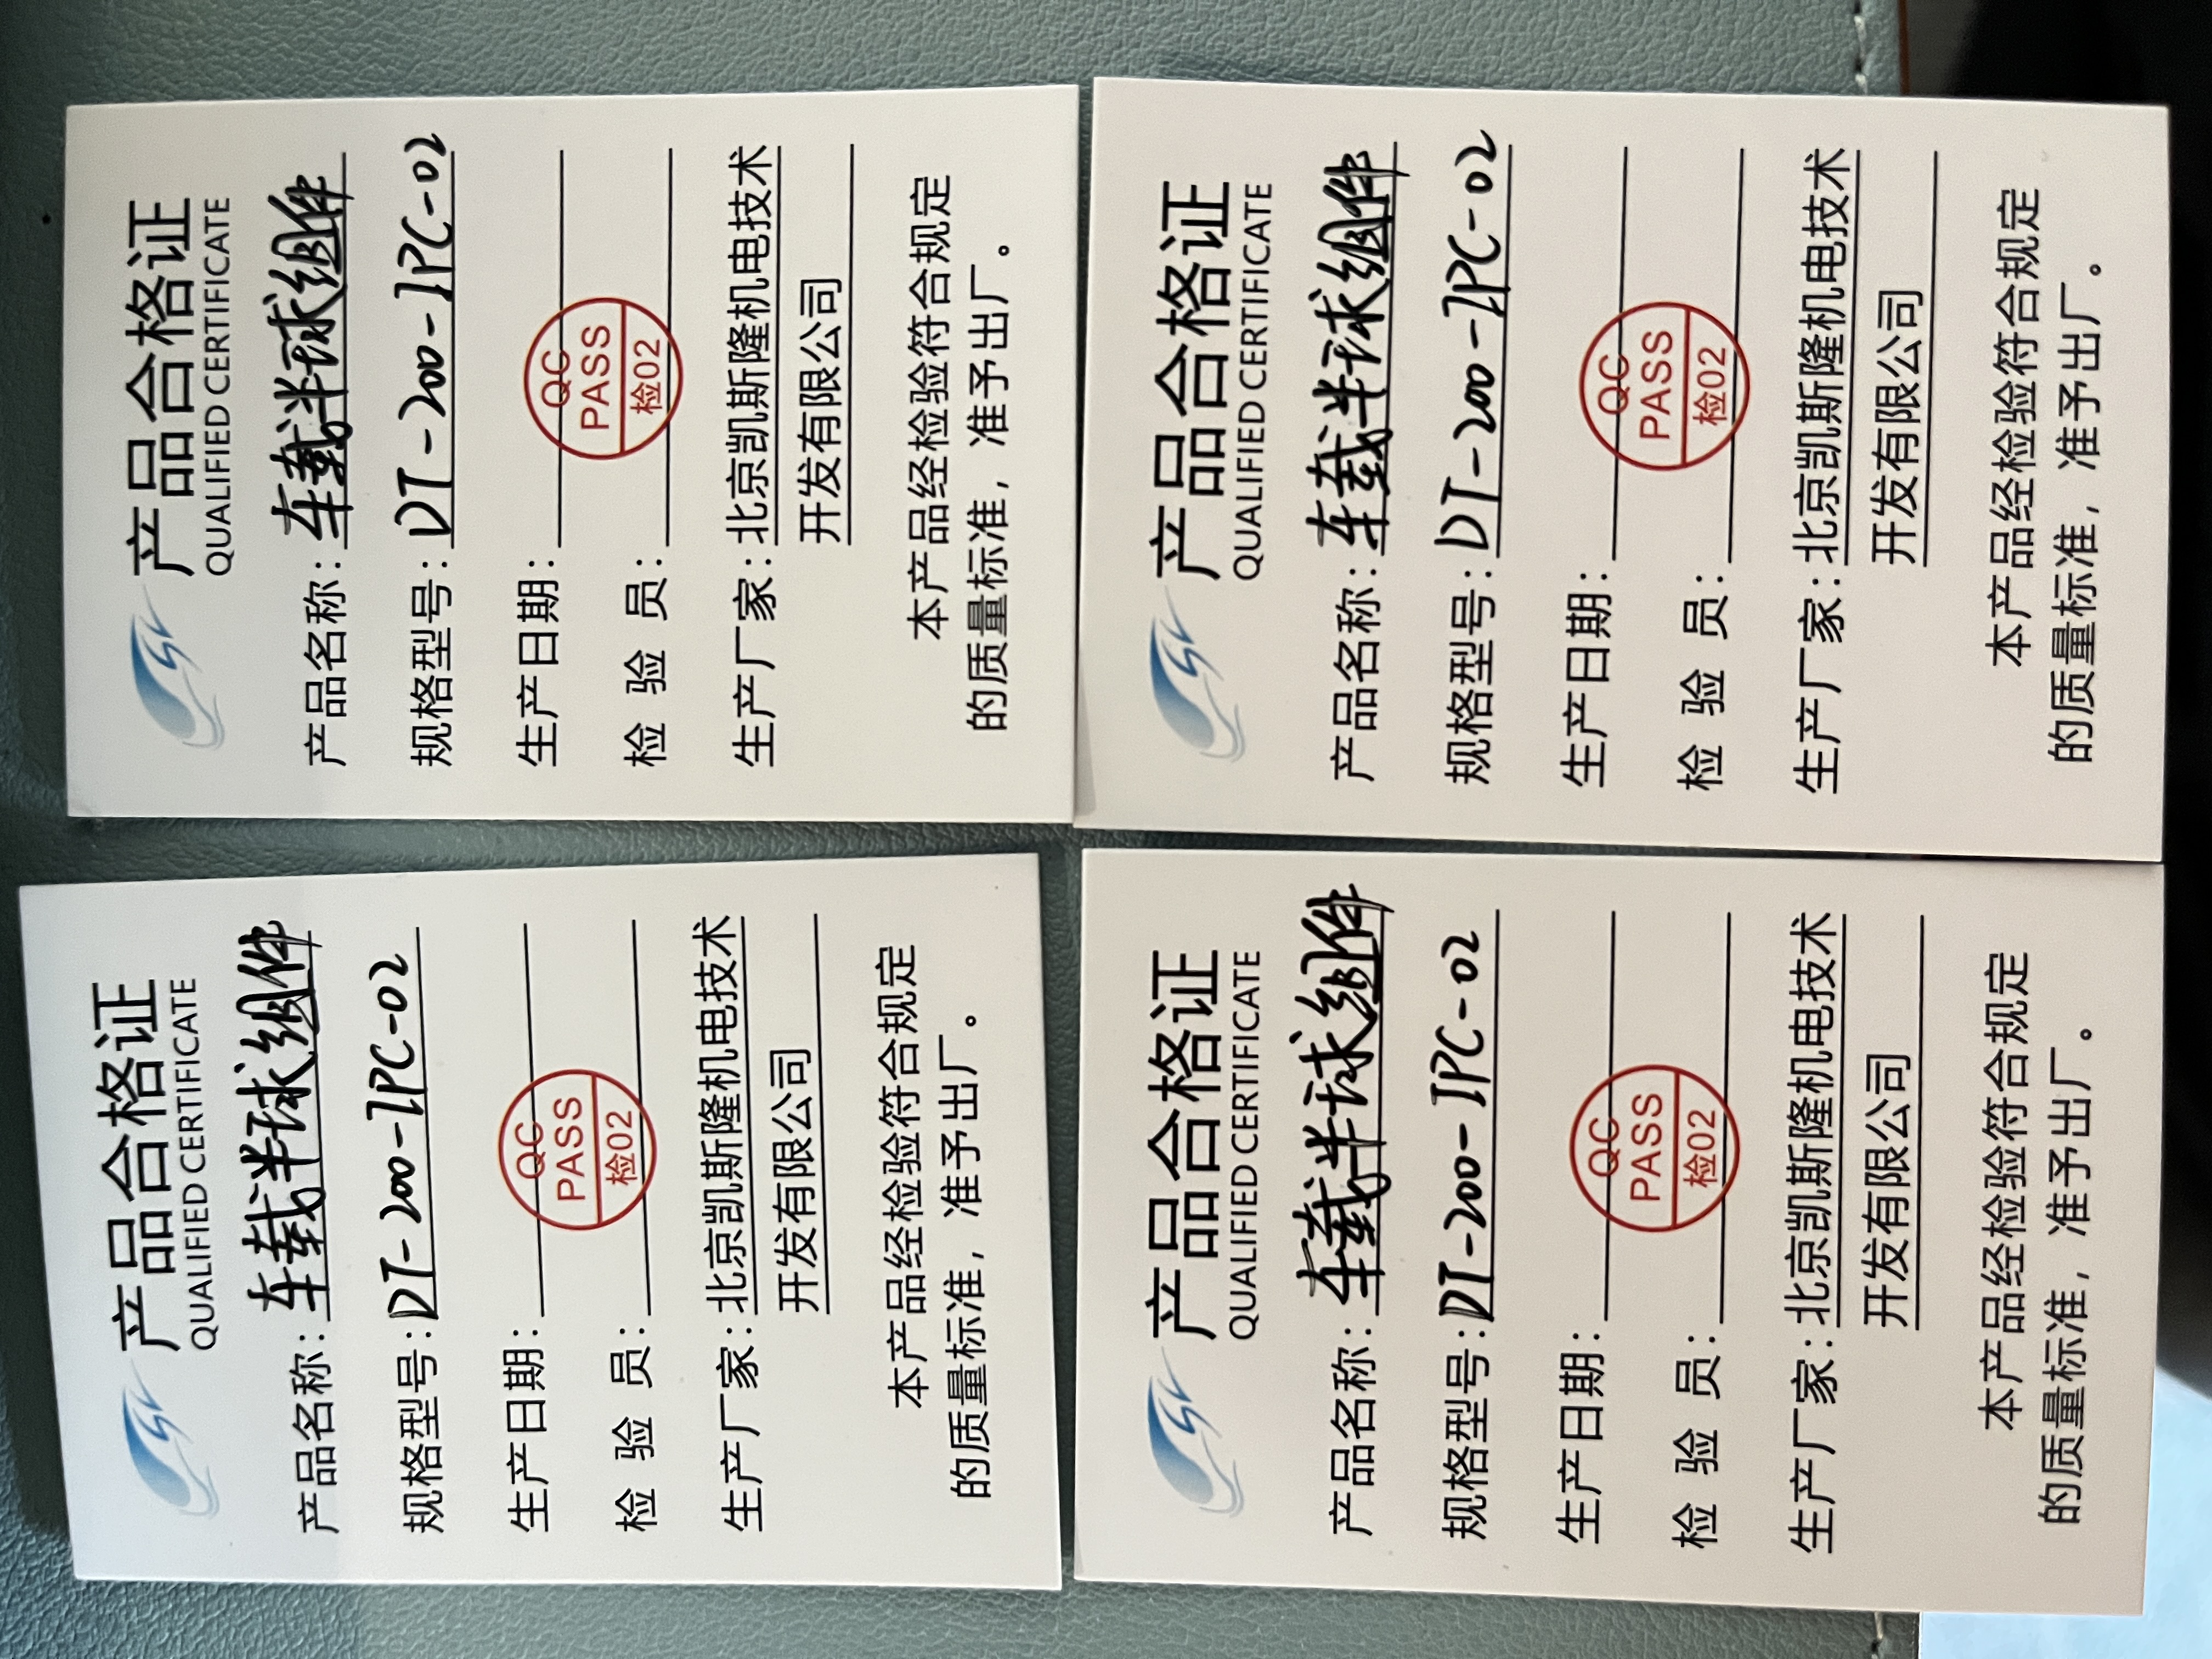 产品合格证
QUALIFIED CERTIFICATE
产品名称：车载半球组件
规格型号：DT-200-IPC-02
生产日期：
检 验 员：
QC
PASS
检02
生产厂家：北京凯斯隆机电技术
开发有限公司
本产品经检验符合规定
的质量标准，准予出厂。
产品合格证
QUALIFIED CERTIFICATE
产品名称：车载半球组件
规格型号：DT-200-IPC-02
生产日期：
检 验 员：
QC
PASS
检02
生产厂家：北京凯斯隆机电技术
开发有限公司
本产品经检验符合规定
的质量标准，准予出厂。
产品合格证
QUALIFIED CERTIFICATE
产品名称：车载半球组件
规格型号：DT-200-IPC-02
生产日期：
检 验 员：
QC
PASS
检02
生产厂家：北京凯斯隆机电技术
开发有限公司
本产品经检验符合规定
的质量标准，准予出厂。
产品合格证
QUALIFIED CERTIFICATE
产品名称：车载半球组件
规格型号：DT-200-IPC-02
生产日期：
检 验 员：
QC
PASS
检02
生产厂家：北京凯斯隆机电技术
开发有限公司
本产品经检验符合规定
的质量标准，准予出厂。